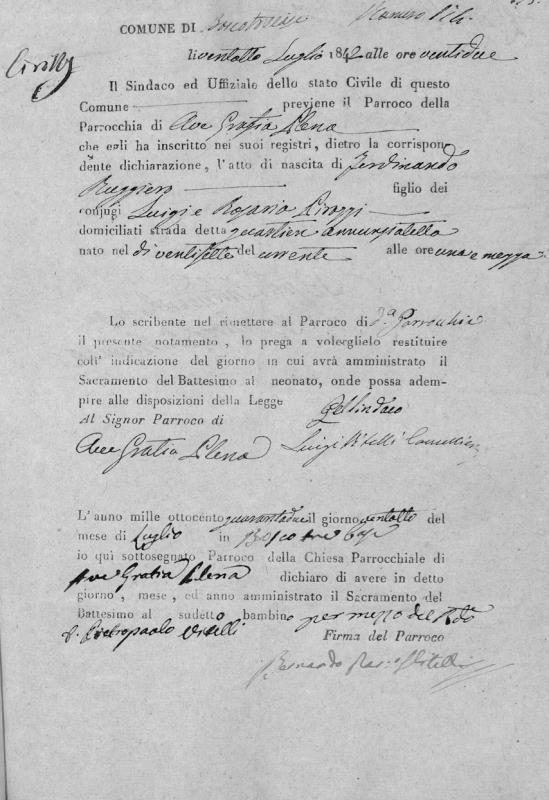 COMUNE DI Boscotrecase Numero
li ventotto Luglio 1842 alle ore ventidue
Il Sindaco ed Uffiziale dello stato Civile di questo
Comune previene il Parroco della
Parrocchia di Ave Gratia Plena
che egli ha inscritto nei suoi registri, dietro la corrispon-
dente dichiarazione, l'atto di nascita di Ferdinando
Ruggiero figlio dei
conjugi Luigi e Rosaria
domiciliati strada detta quartiere annunziatella
nato nel dì ventisette del corrente alle ore una e mezza
Lo scribente nel rimettere al Parroco di d.a Parrocchia
il presente notamento, lo prega a volerglielo restituire
coll' indicazione del giorno in cui avrà amministrato il
Sacramento del Battesimo al neonato, onde possa adem-
pire alle disposizioni della Legge
Al Signor Parroco di Pel Sindaco
Ave Gratia Plena Luigi Vitelli
L'anno mille ottocento quarantadue il giorno ventotto del
mese di Luglio in Boscotrecase
io qui sottosegnato Parroco della Chiesa Parrocchiale di
Ave Gratia Plena dichiaro di avere in detto
giorno, mese, ed anno amministrato il Sacramento del
Battesimo al sudetto bambino per mezzo del Rdo
D. Pietropaolo Vitelli
Firma del Parroco
Bernardo Par. Vitelli